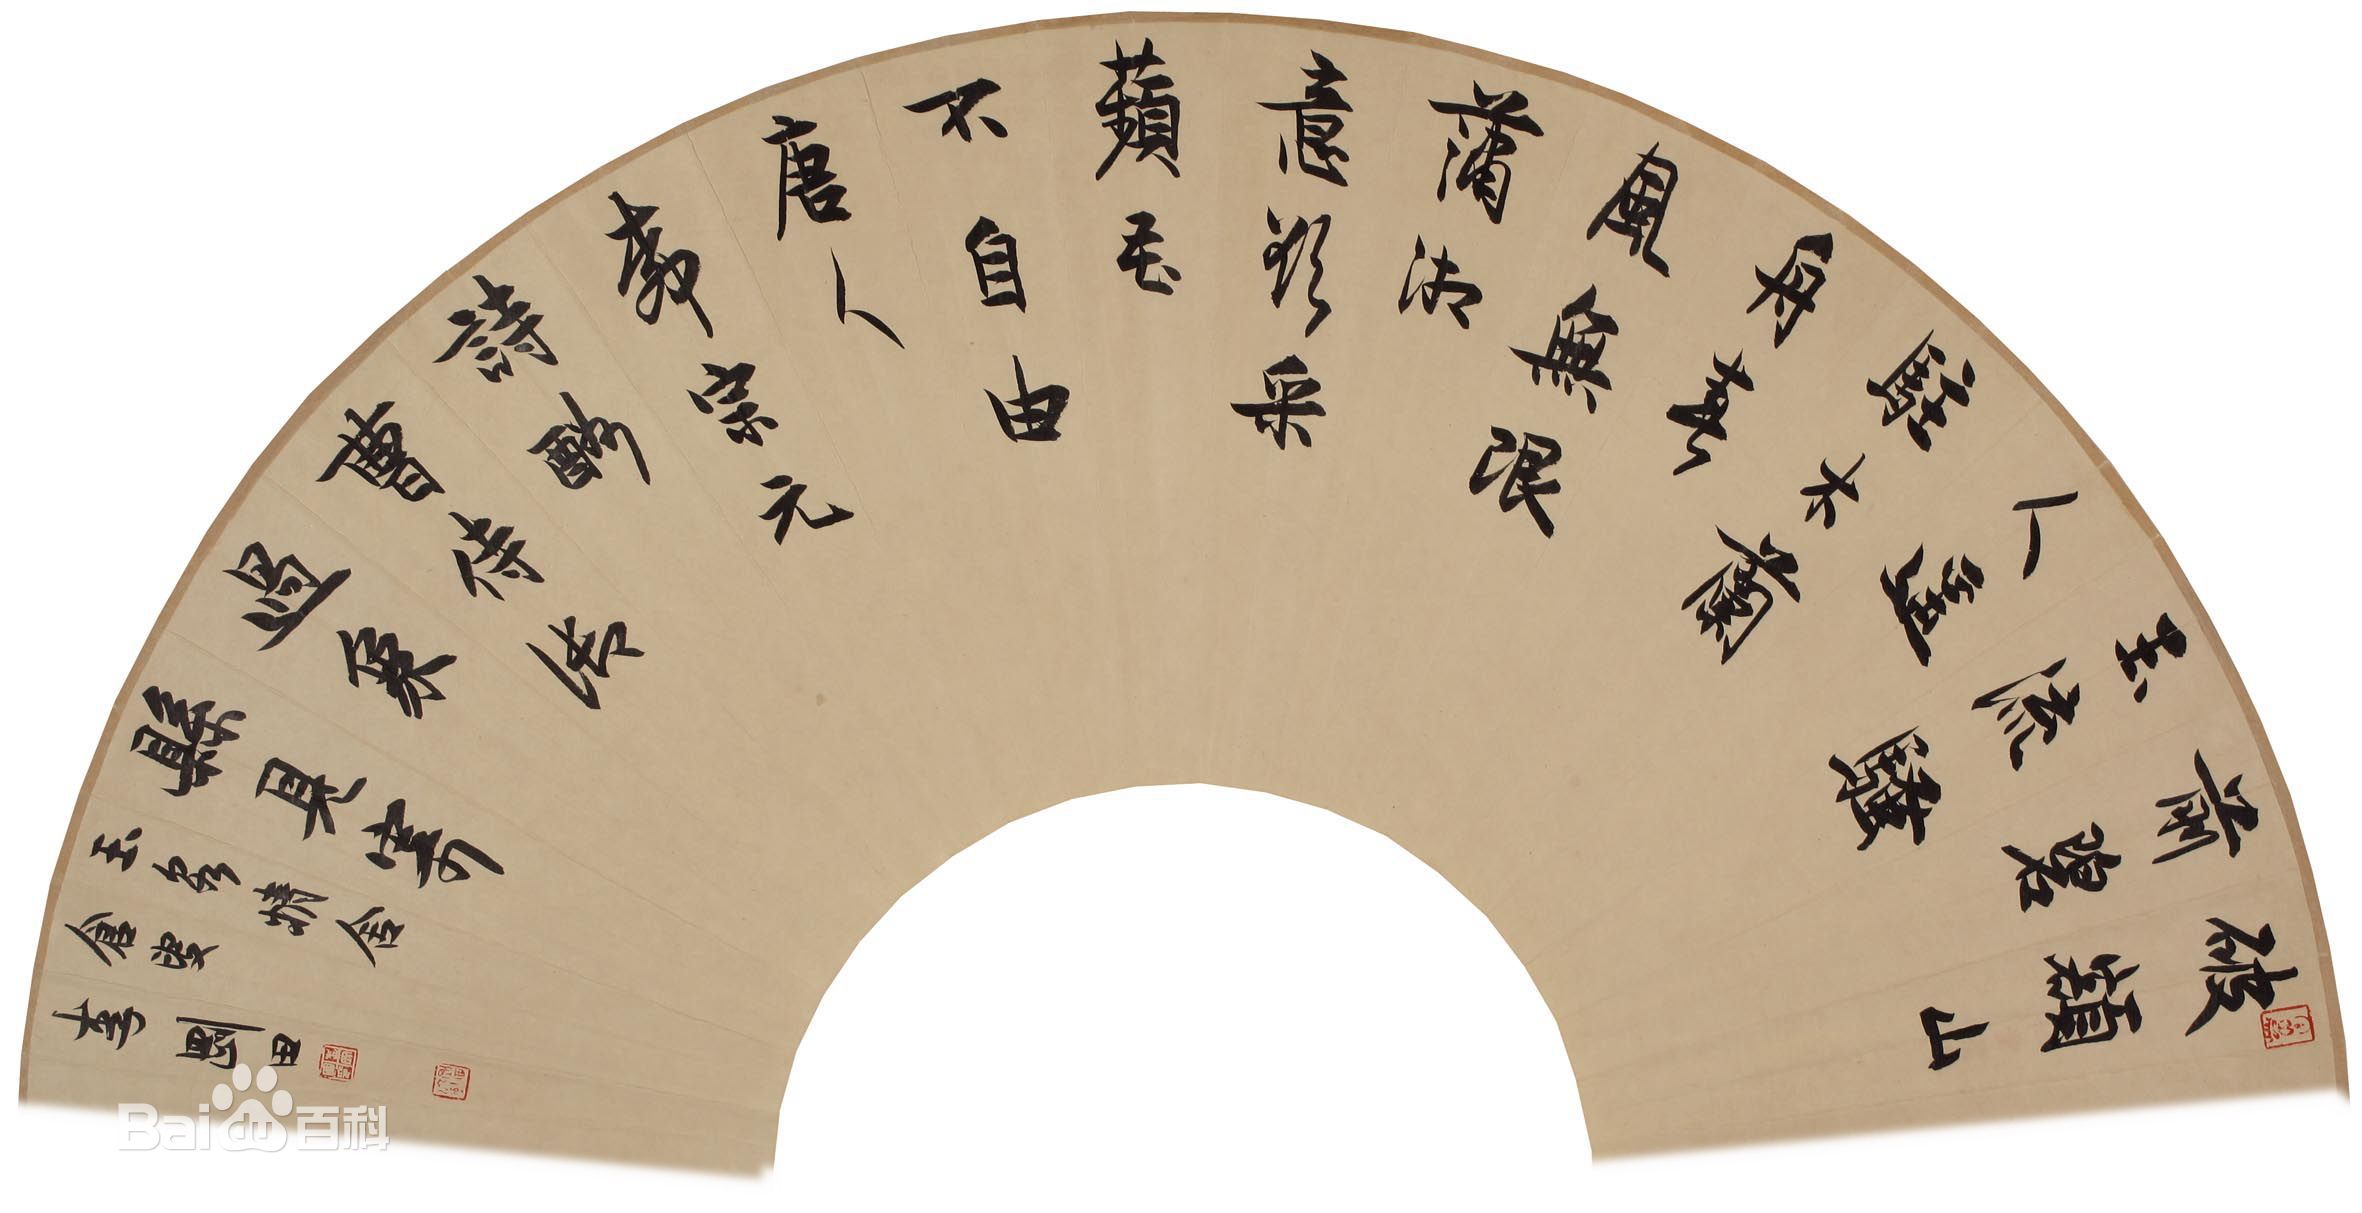 破額山
前碧
玉流騷
人遙
駐木蘭
舟春
風無限
瀟湘
意欲采
蘋花
不自由
唐人
柳宗元
詩酬
曹侍御
過象
縣見寄
玉精舍
書田
Bai百科